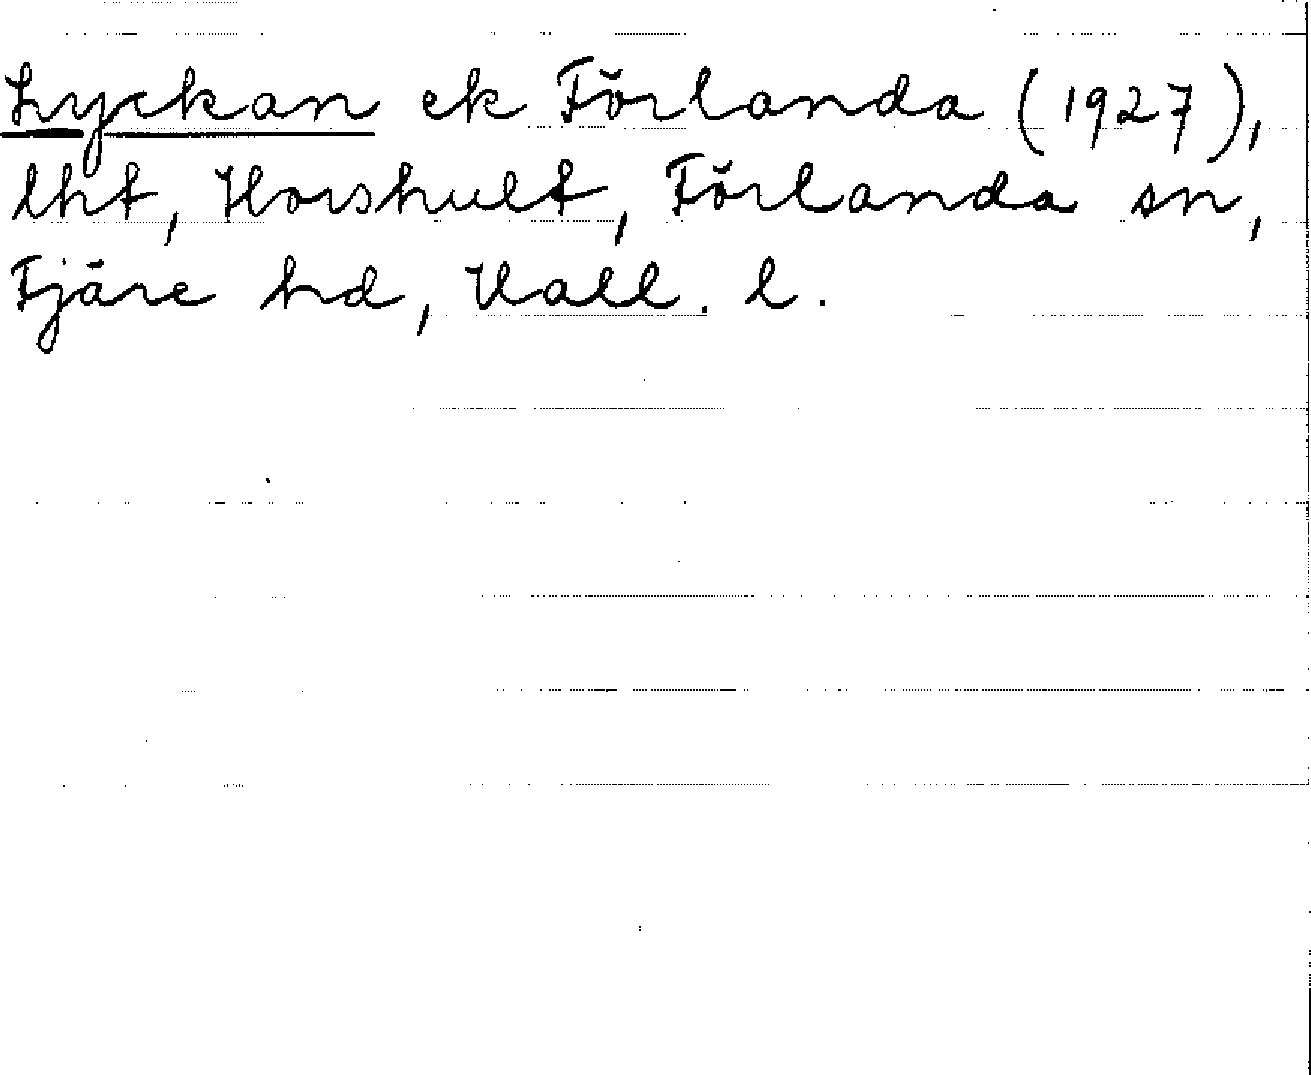 Lyckan ek Förlanda (1927),
lht, Horshult, Förlanda sn,
Fjäre hd, Hall. l.